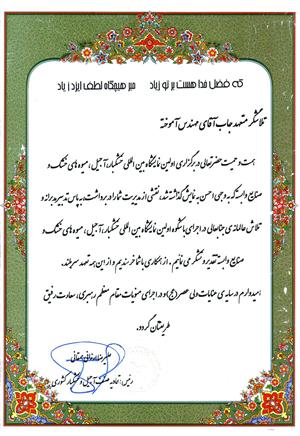 که فضل خدا هست بر تو زیاد   مبر هیچگاه لطف ایزد ز یاد
تلاشگر متعهد جناب آقای مهندس آموخته
همت و حمیت حضرتعالی در برگزاری اولین نمایشگاه بین المللی خشکبار، آجیل، میوه های خشک و
صنایع وابسته که به وجهی احسن به نمایش گذاشته شد، نقشی از مدیریت شما را در بر داشت، به پاس تدبیر مدبرانه و
تلاش عالمانه ی جنابعالی در اجرای باشکوه اولین نمایشگاه بین المللی خشکبار، آجیل، میوه های خشک و
صنایع وابسته تقدیر و تشکر می نمائیم. از همکاری با شما خرسندیم و از این همه تعهد سربلند.
امیدوارم در سایه ی عنایات ولی عصر (عج) و در اجرای منویات مقام معظم رهبری، سعادت رفیق
طریقتان گردد.
رئیس اتحادیه صنف آجیل و خشکبار کشوری